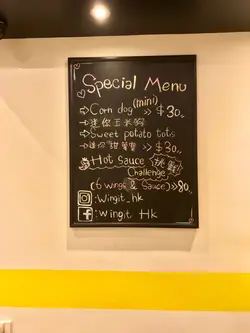 Special Menu
(mini)
⇨Corn dog >> $30.
⇨迷你玉米狗
⇨Sweet potato tots
⇨迷你甜薯寶 >> $30.
Hot Sauce 挑戰
Challenge
(6 wings & Sauce) >> 80.
:Wingit_hk
:Wingit Hk